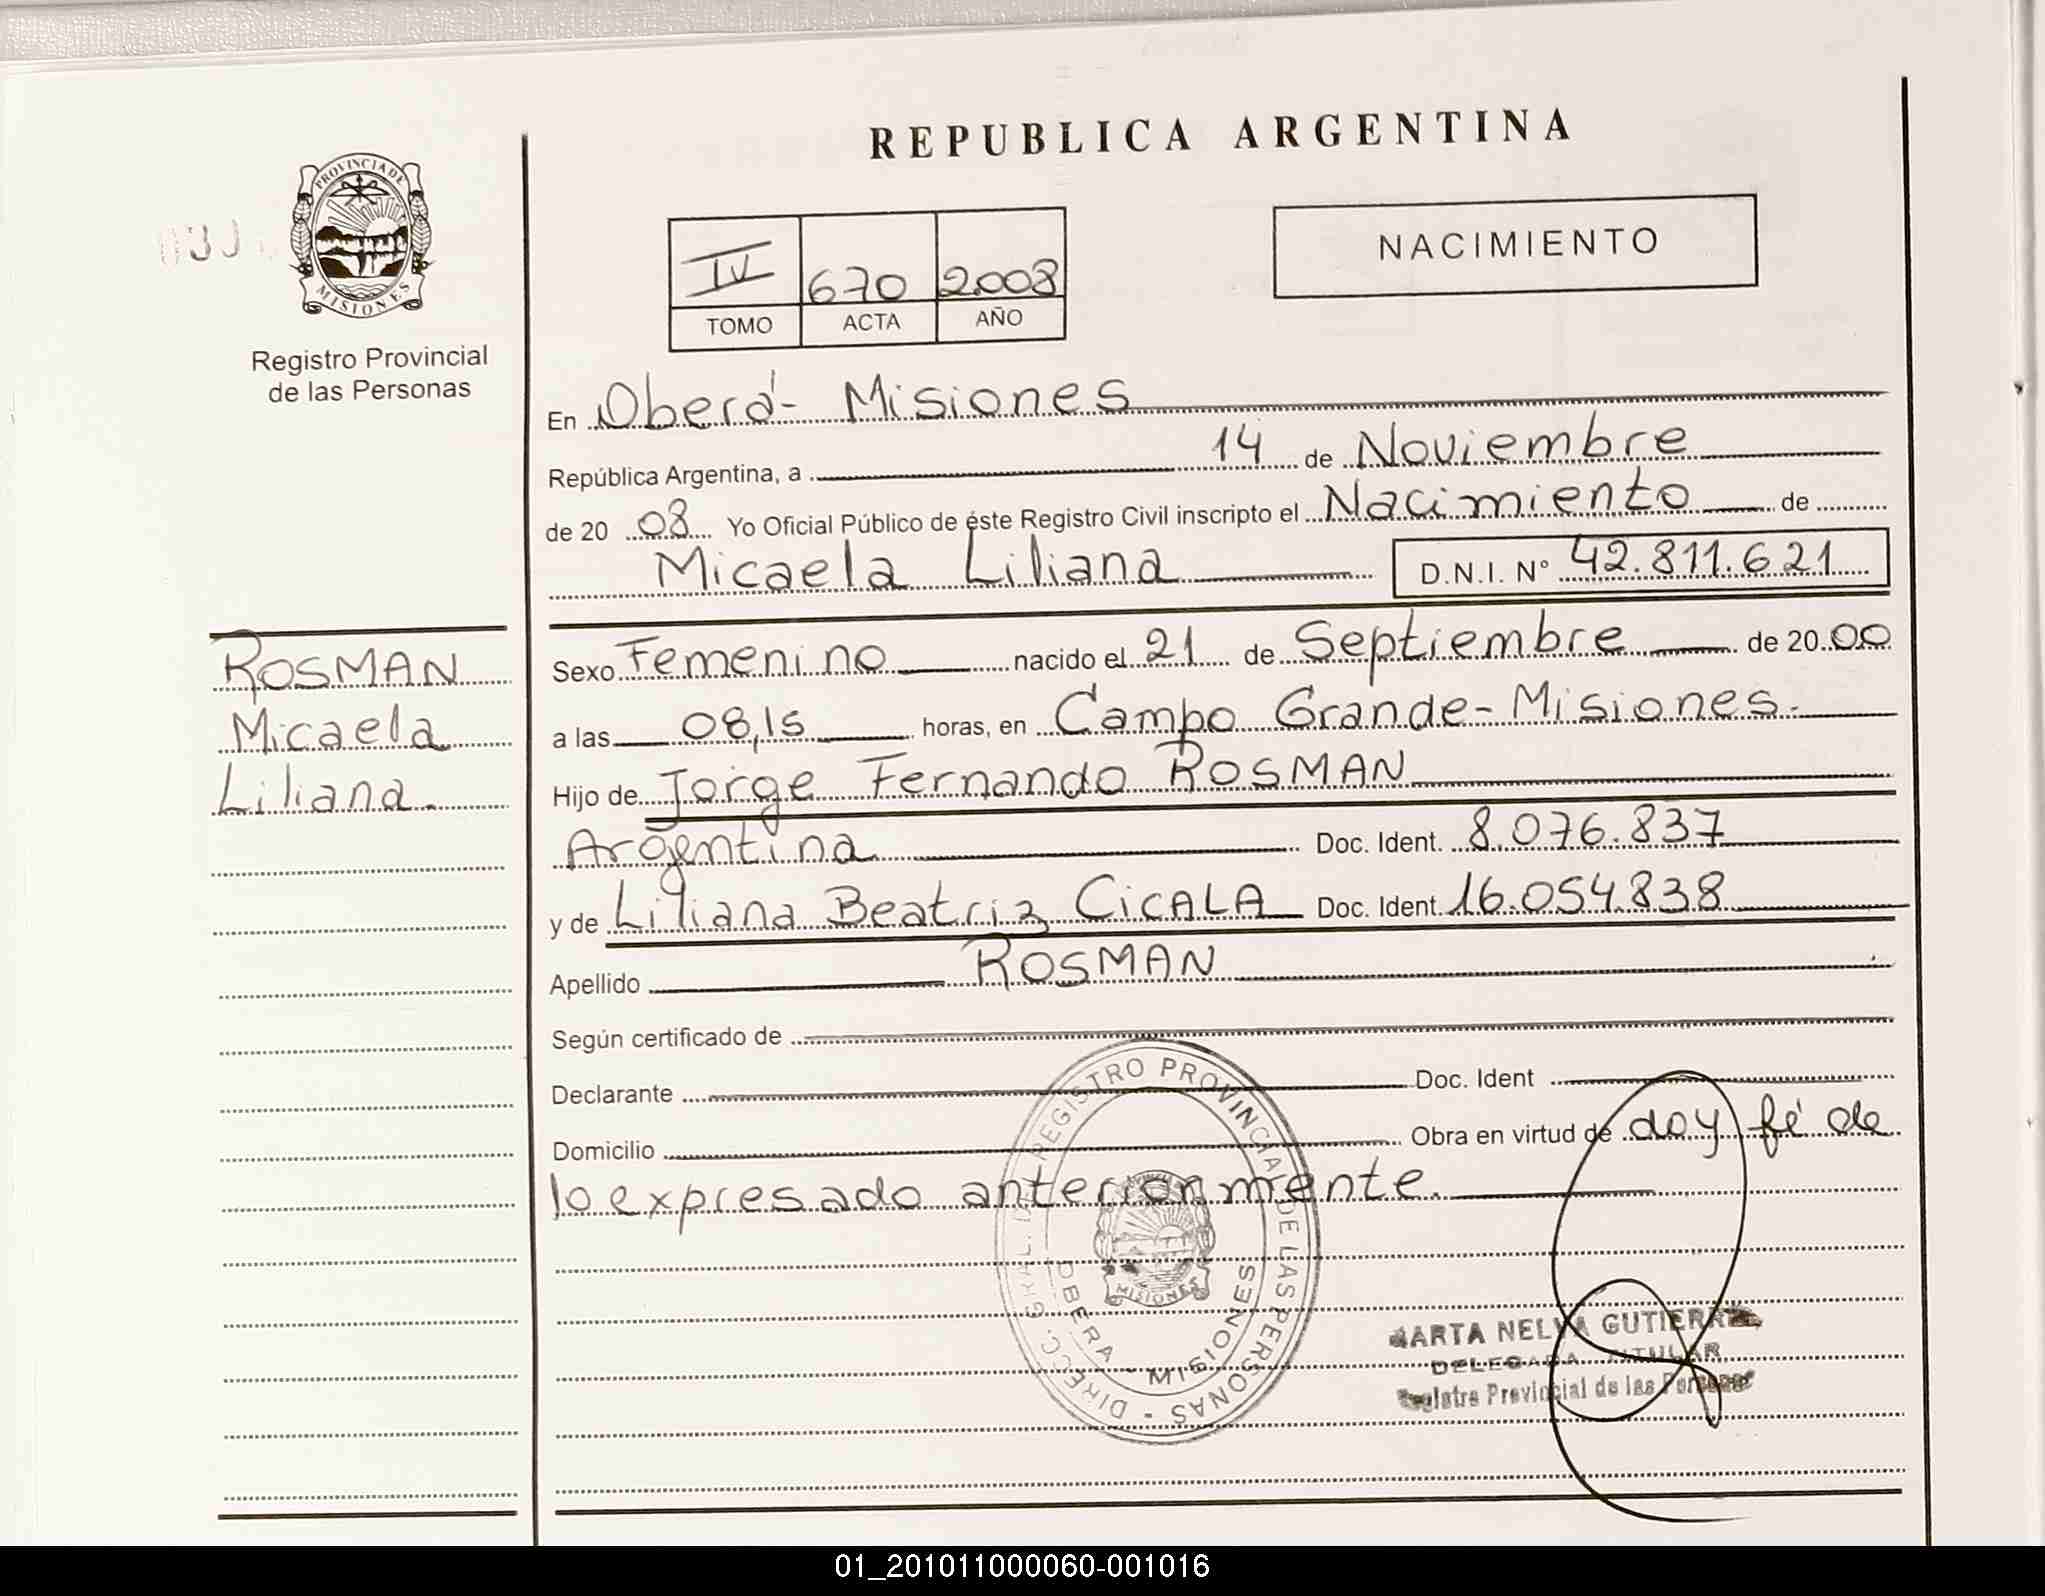 REPUBLICA ARGENTINA
PROVINCIA DE
MISIONES
Registro Provincial
de las Personas
IV 670 2.008
TOMO ACTA AÑO
NACIMIENTO
En Oberá - Misiones
República Argentina, a 14 de Noviembre
de 20 08 Yo Oficial Público de éste Registro Civil inscripto el Nacimiento de
Micaela Liliana D.N.I. N° 42.811.621
ROSMAN
Micaela
Liliana.
Sexo Femenino nacido el 21 de Septiembre de 20 00
a las 08,15 horas, en Campo Grande - Misiones.
Hijo de Jorge Fernando ROSMAN
Argentina Doc. Ident. 8.076.837
y de Liliana Beatriz CICALA Doc. Ident. 16.054.838
Apellido ROSMAN
Según certificado de
Declarante Doc. Ident
Domicilio Obra en virtud de doy fé de
lo expresado anteriormente.
DIRECC. GRAL. REGISTRO PROVINCIAL DE LAS PERSONAS -
OBERA - MISIONES
MISIONES
MARTA NELVA GUTIERREZ
DELEGADA TITULAR
Registro Provincial de las Personas
01_201011000060-001016